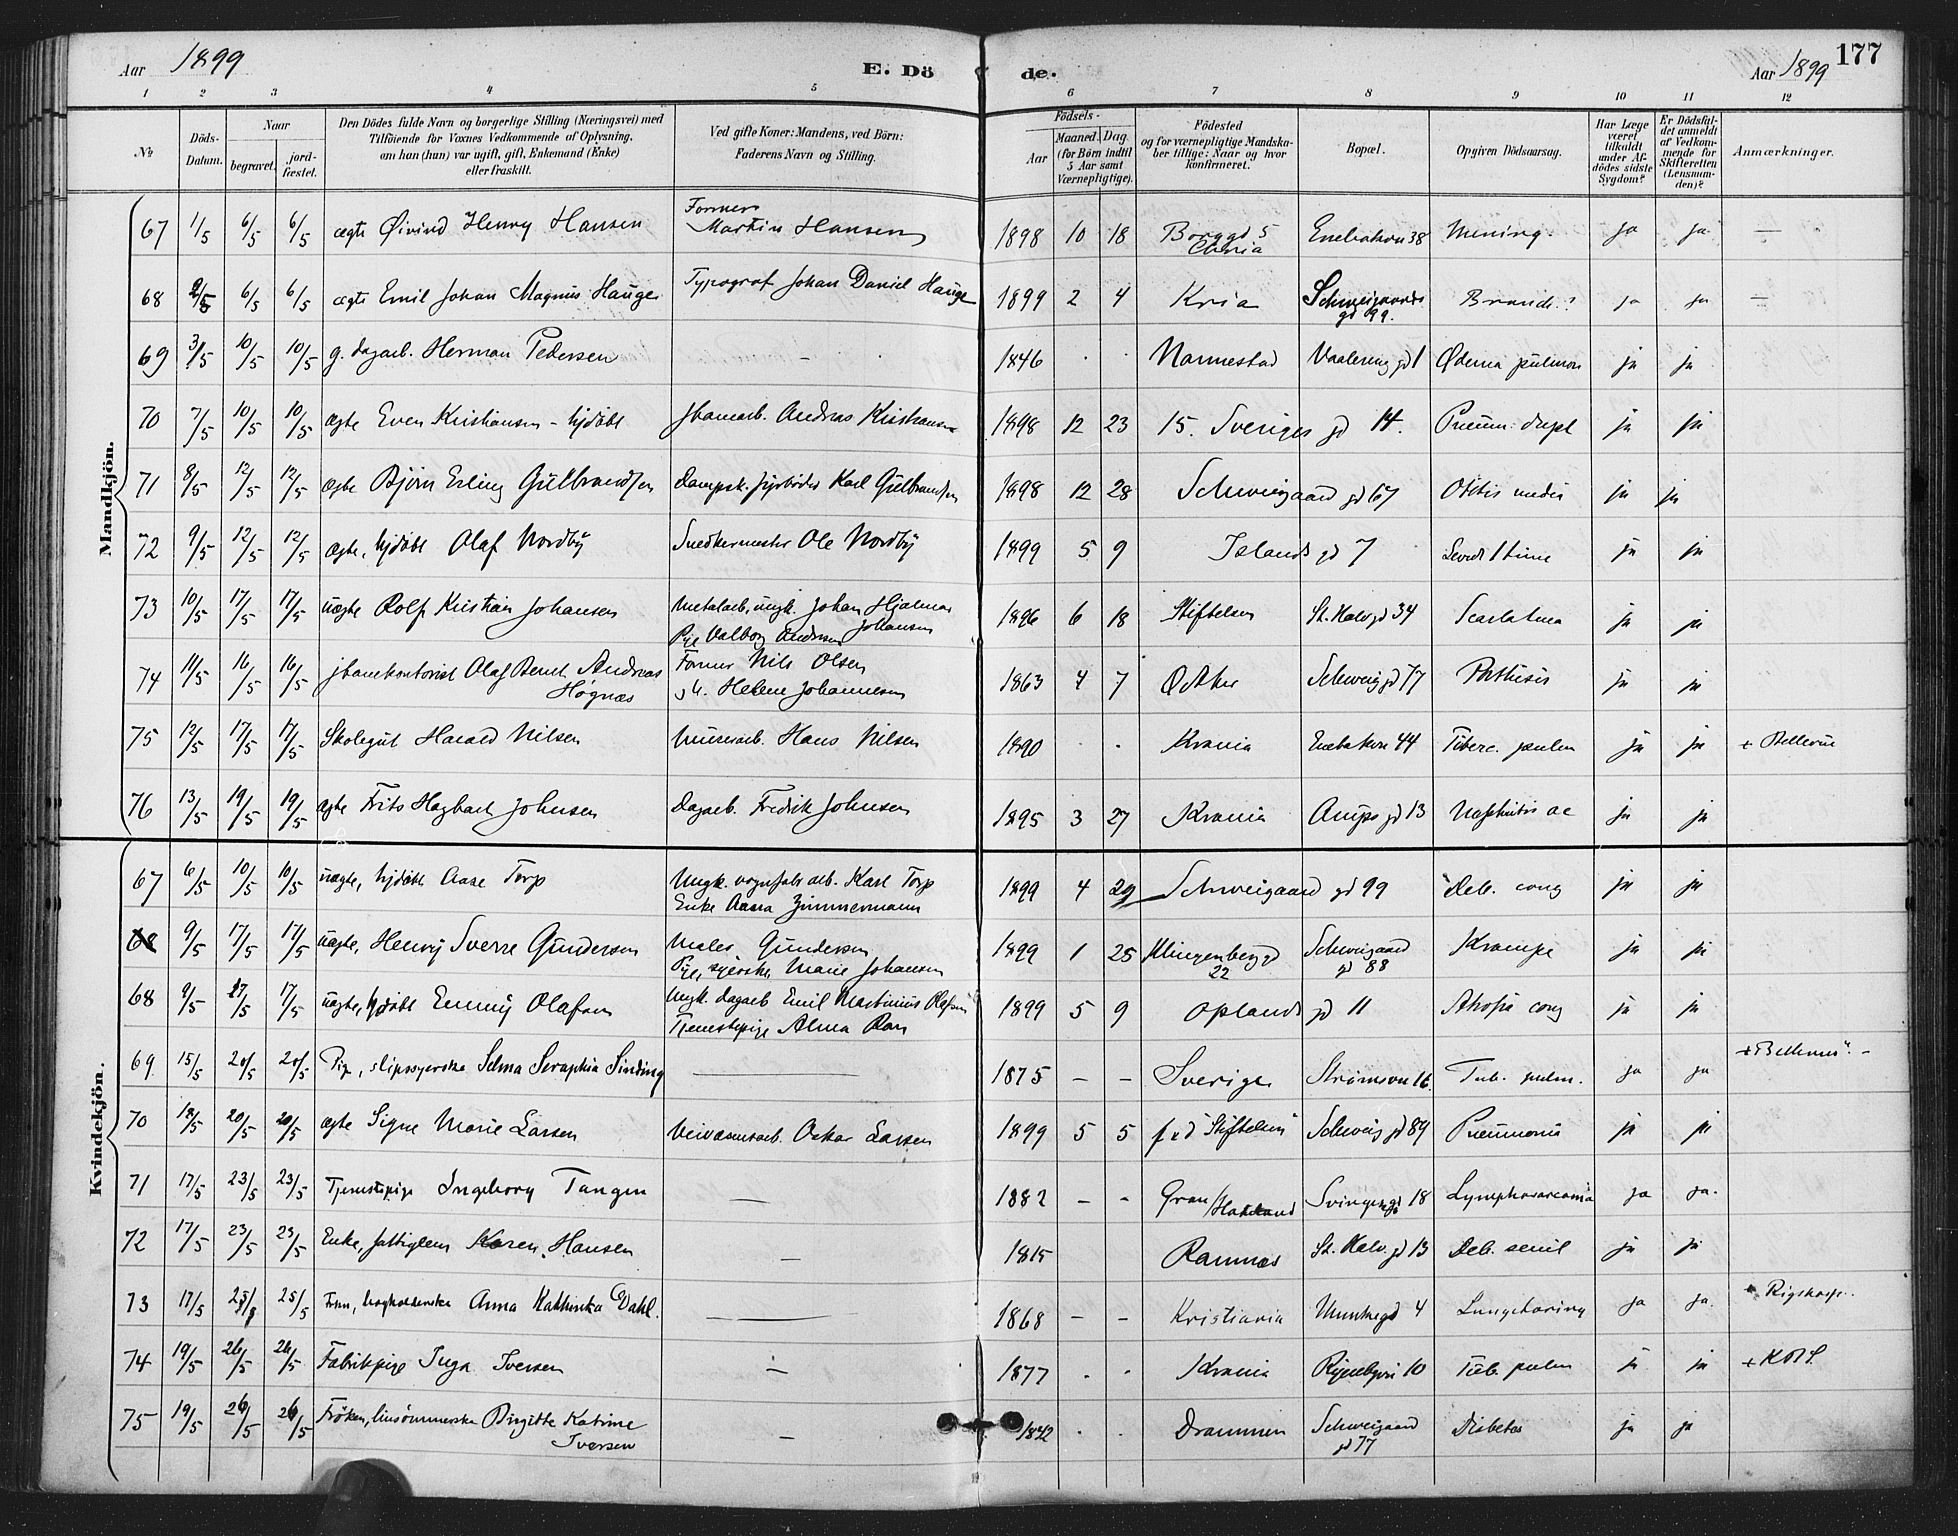 Aar 1899
E. Dö de.
Aar 1899
177
1 2 3 4 5 6 7 8 9 10 11 12
No
Döds-Datum.
Naar
begravet.
jord-fæstet.
Den Dödes fulde Navn og borgerlige Stilling (Næringsvei) med
Tilföiende for Voxnes Vedkommende af Oplysning,
om han (hun) var ugift, gift, Enkemand (Enke)
eller fraskilt.
Ved gifte Koner: Mandens, ved Börn:
Faderens Navn og Stilling.
Födsels-
Aar
Maaned. Dag.
(for Börn indtil
5 Aar samt
Værnepligtige).
Födested
og for værnepligtige Mandska-
ber tillige: Naar og hvor
konfirmeret.
Bopæl.
Opgiven Dödsaarsag.
Har Læge
været
tilkaldt
under Af-
dödes sidste
Sygdom?
Er Dödsfal-
det anmeldt
af Vedkom-
mende for
Skifteretten
(Lensman-
den)?
Anmærkninger.
Mandkjön.
67 1/5 6/5 6/5 ægte Øivind Henry Hansen Former Martin Hansen 1898 10 18 Borggd 5 Chria Enebakvn 38 Mening. ja ja —
68 2/5 6/5 6/5 ægte Emil Johan Magnus Hauge Typograf Johan Daniel Hauge 1899 2 4 Kria Schweigaards gd 99. ja ja —
69 3/5 10/5 10/5 g. dagarb. Herman Pedersen — 1846 · · Nannestad Vaalereng gd 1 Ødema pulmon ja ja
70 7/5 10/5 10/5 ægte Even Kristiansen - hjdöbt Jbanearb. Andreas Kristiansen 1898 12 23 15. Sveriges gd 14. Pneum. dupl ja ja
71 8/5 12/5 12/5 ægte Bjørn Erling Gulbrandsen Dampsk. fyrböder Karl Gulbrandsen 1898 12 28 Schweigaard gd 67 Otitis media ja ja
72 9/5 12/5 12/5 ægte, hjdöbt Olaf Nordby Snedkermester Ole Nordby 1899 5 9 Islands gd 7 Levede 1 time ja ja
73 10/5 17/5 17/5 uægte Rolf Kristian Johansen Metalarb, ungk. Johan Hjalmar Johansen Pige Valborg Andersen 1896 6 18 Stiftelsen St. Halvgd 34 Scarlatina ja ja
74 11/5 16/5 16/5 jbanekontorist Olaf Bernt Andreas Høgnæs Former Nils Olsen Helene Johannesen 1863 4 7 Ø Aker Schweig gd 77 Phthisis ja ja
75 12/5 17/5 17/5 Skolegut Harald Nilsen Murerarb. Hans Nilsen 1890 · · Krania Enebakvn 44 Tuberc. pulm ja ja + Bellevue
76 13/5 19/5 19/5 ægte Frits Hagbart Johnsen Dagarb. Fredrik Johnsen 1895 3 27 Krania Amps gd 13 Nephritis ac ja ja
Kvindekjön.
67 6/5 10/5 10/5 uægte, hjdöbt Aase Torp Ungk. vognfabr arb. Karl Torp Enke Anna Zimmermann 1899 4 29 Schweigaard gd 99 Deb. cong ja ja
68 9/5 17/5 17/5 uægte, Henry Sverre Gundersen Maler Gundersen Pige, syerske Marie Johansen 1899 1 25 Klingenberggd 22 Schweigaard gd 88 Krampe ja ja
68 9/5 17/5 17/5 uægte, hjdöbt Emmy Olafsen Ungk. dagarb Emil Martinius Olafsen Tjenestepige Alma 1899 5 9 Oplands gd 11 Atrofia cong ja ja
69. 15/5 20/5 20/5 Pige, slipssyerske Selma Seraphia Sinding — 1875 — — Sverige Strömsvn 16 Tub. pulm. ja ja + Bellevue" —
70 18/5 20/5 20/5 ægte Signe Marie Larsen Veivæsensarb. Oskar Larsen 1899 5 5 f. pd "Stiftelsen" Schweig gd 89 Pneumonia ja ja
71 17/5 23/5 23/5 Tjenestepige Ingeborg Tangen — 1882 — - Gran /Hadeland Svingengd 18 Lymphosarcoma ja ja.
72 17/5 23/5 23/5 Enke, fattiglem Karen Hansen — 1815 · · Ramnæs St. Halv. gd 13 Deb. senil ja ja
73 17/5 25/5 25/5 Frun, hagholderske Anna Kathinka Dahl. — 1868 — — Kristiania Munkegd 4 Lungebetæn ja ja. + Rigshosp.
74 19/5 26/5 26/5 Fabrikpige Inga Iversen — 1877 · · Krania Ryenbgvn 10 Tub. pulm ja ja + K B S.
75 19/5 26/5 26/5 Fröken, linsömmerske Birgitte Katrine Iversen — 1842 · · Drammen Schweigaard gd 77 Diabetes ja ja